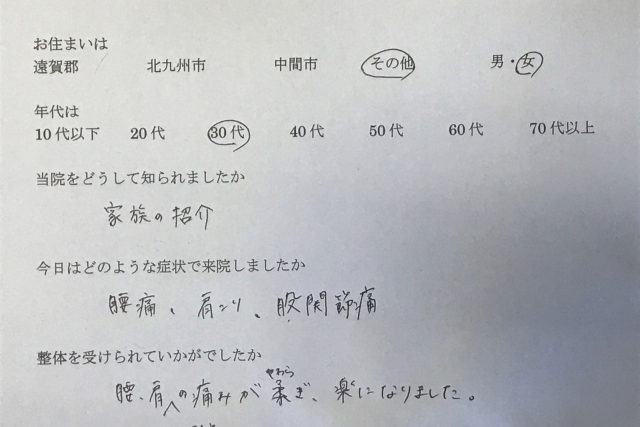 お住まいは
遠賀郡 北九州市 中間市 その他 男・女
年代は
10代以下 20代 30代 40代 50代 60代 70代以上
当院をどうして知られましたか
家族の紹介
今日はどのような症状で来院しましたか
腰痛、肩こり、股関節痛
整体を受けられていかがでしたか
やわら
腰、肩の痛みが柔ぎ、楽になりました。